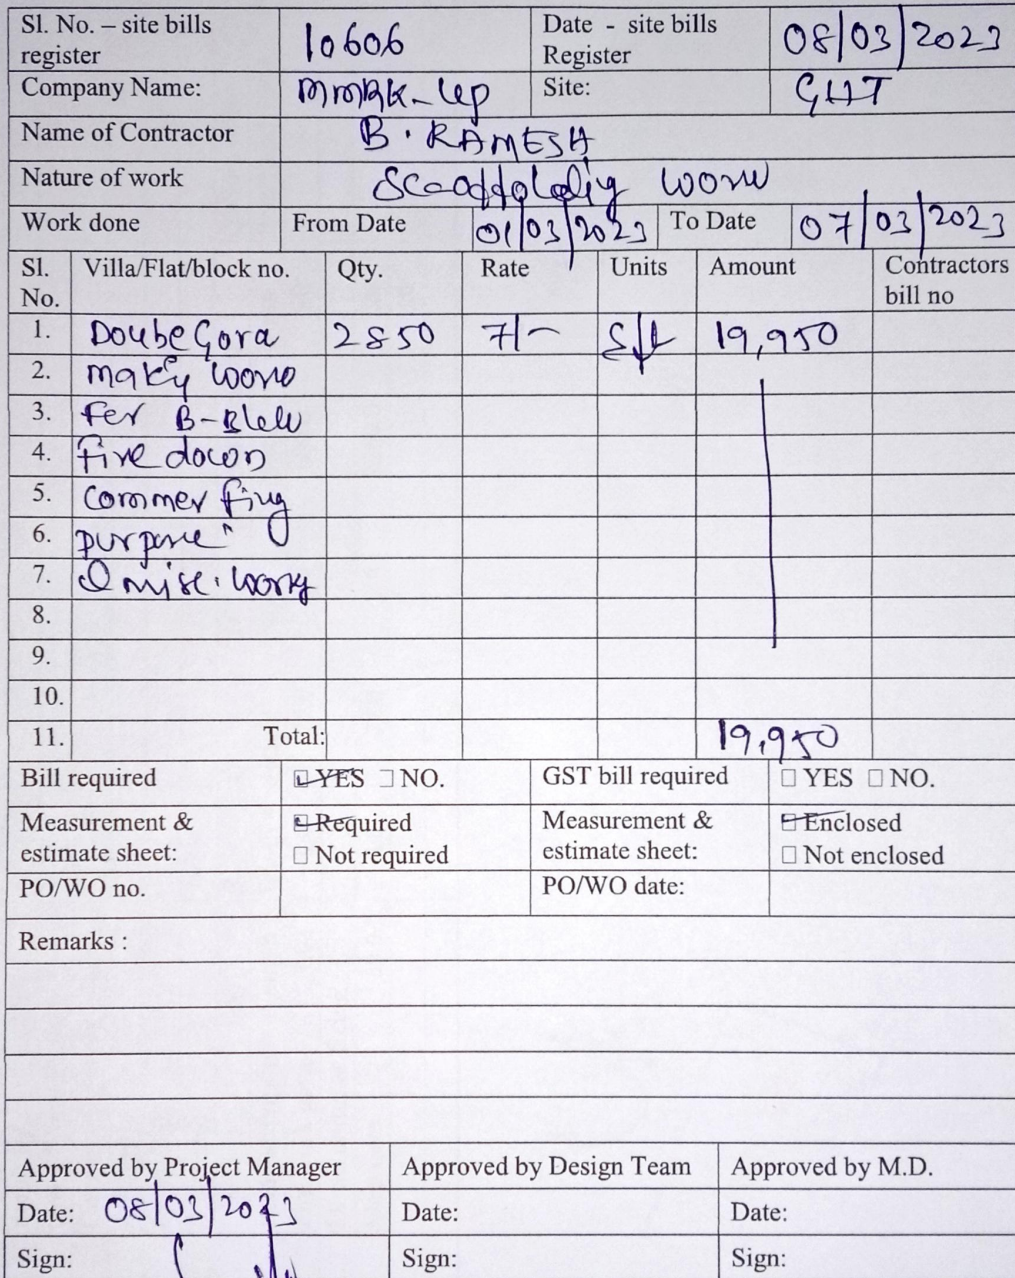 Sl. No. – site bills register 10606 Date - site bills Register 08/03/2023
Company Name: Site: GHT
Name of Contractor B. RAMESH
Nature of work
Work done From Date 01/03/2023 To Date 07/03/2023
Sl. No. Villa/Flat/block no. Qty. Rate Units Amount Contractors bill no
1. Doube Gora 2850 7/- Sft 19,950
2.
3. Fer
4. Five down
5.
6. purpose
7.
8.
9.
10.
11. Total: 19,950
Bill required YES NO. GST bill required YES NO.
Measurement & estimate sheet: Required Measurement & estimate sheet: Enclosed
Not required Not enclosed
PO/WO no. PO/WO date:
Remarks :
Approved by Project Manager Approved by Design Team Approved by M.D.
Date: 08/03/2023 Date: Date:
Sign: Sign: Sign: